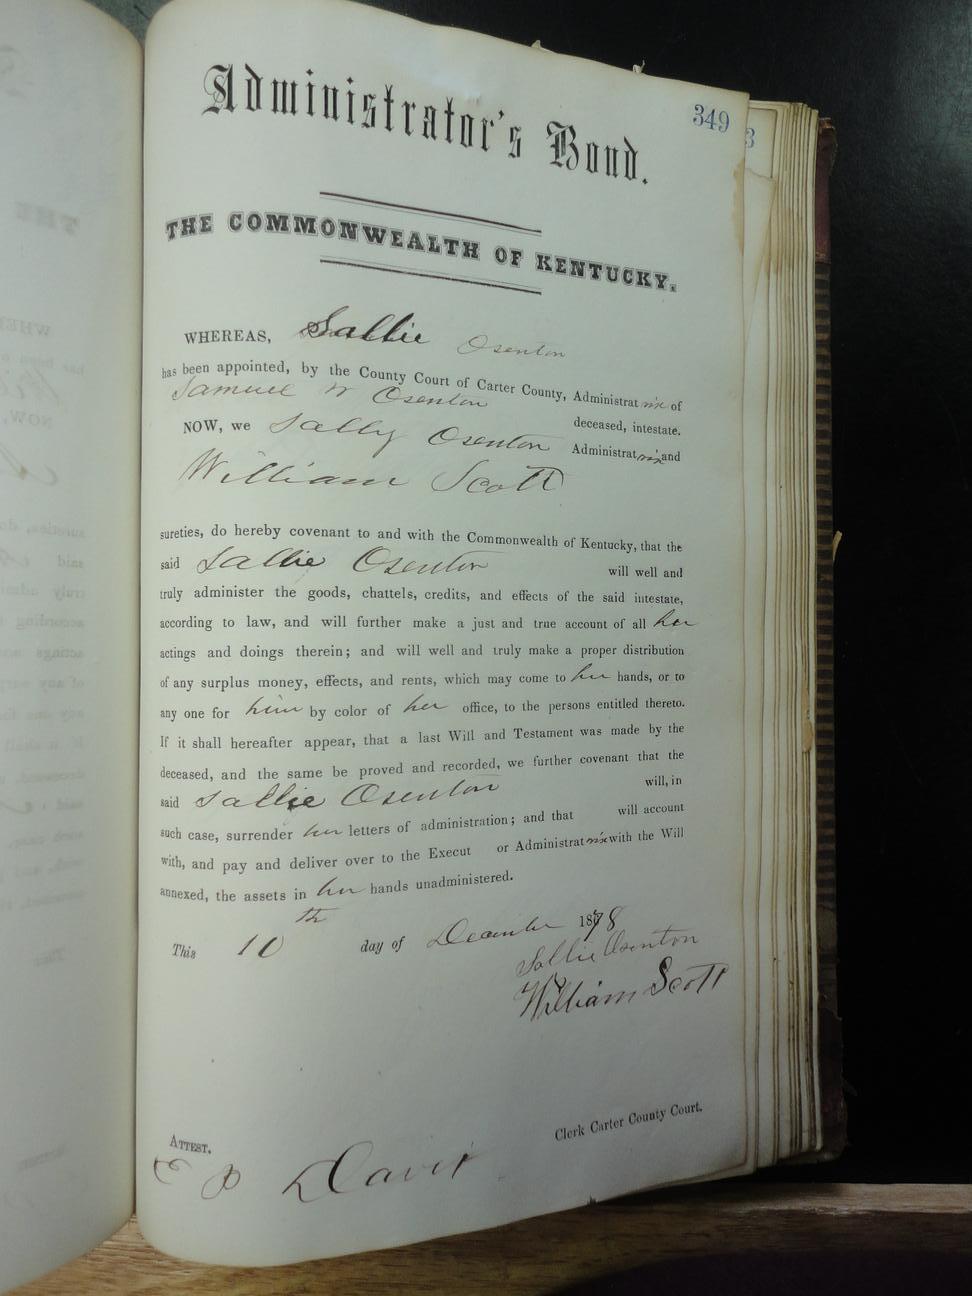 349
3
Administrator's Bond.
THE COMMONWEALTH OF KENTUCKY.
WHEREAS, Sallie Osenton
has been appointed, by the County Court of Carter County, Administratrix of
Samuel W Osenton deceased, intestate.
NOW, we Sally Osenton Administratrix and
William Scott
sureties, do hereby covenant to and with the Commonwealth of Kentucky, that the
said Sallie Osenton will well and
truly administer the goods, chattels, credits, and effects of the said intestate,
according to law, and will further make a just and true account of all her
actings and doings therein; and will well and truly make a proper distribution
of any surplus money, effects, and rents, which may come to her hands, or to
any one for him by color of her office, to the persons entitled thereto.
If it shall hereafter appear, that a last Will and Testament was made by the
deceased, and the same be proved and recorded, we further covenant that the
said Sallie Osenton will, in
such case, surrender her letters of administration; and that will account
with, and pay and deliver over to the Execut or Administratrix with the Will
annexed, the assets in her hands unadministered.
This 10th day of December 1878
Sallie Osenton
William Scott
ATTEST.
Clerk Carter County Court.
Davis